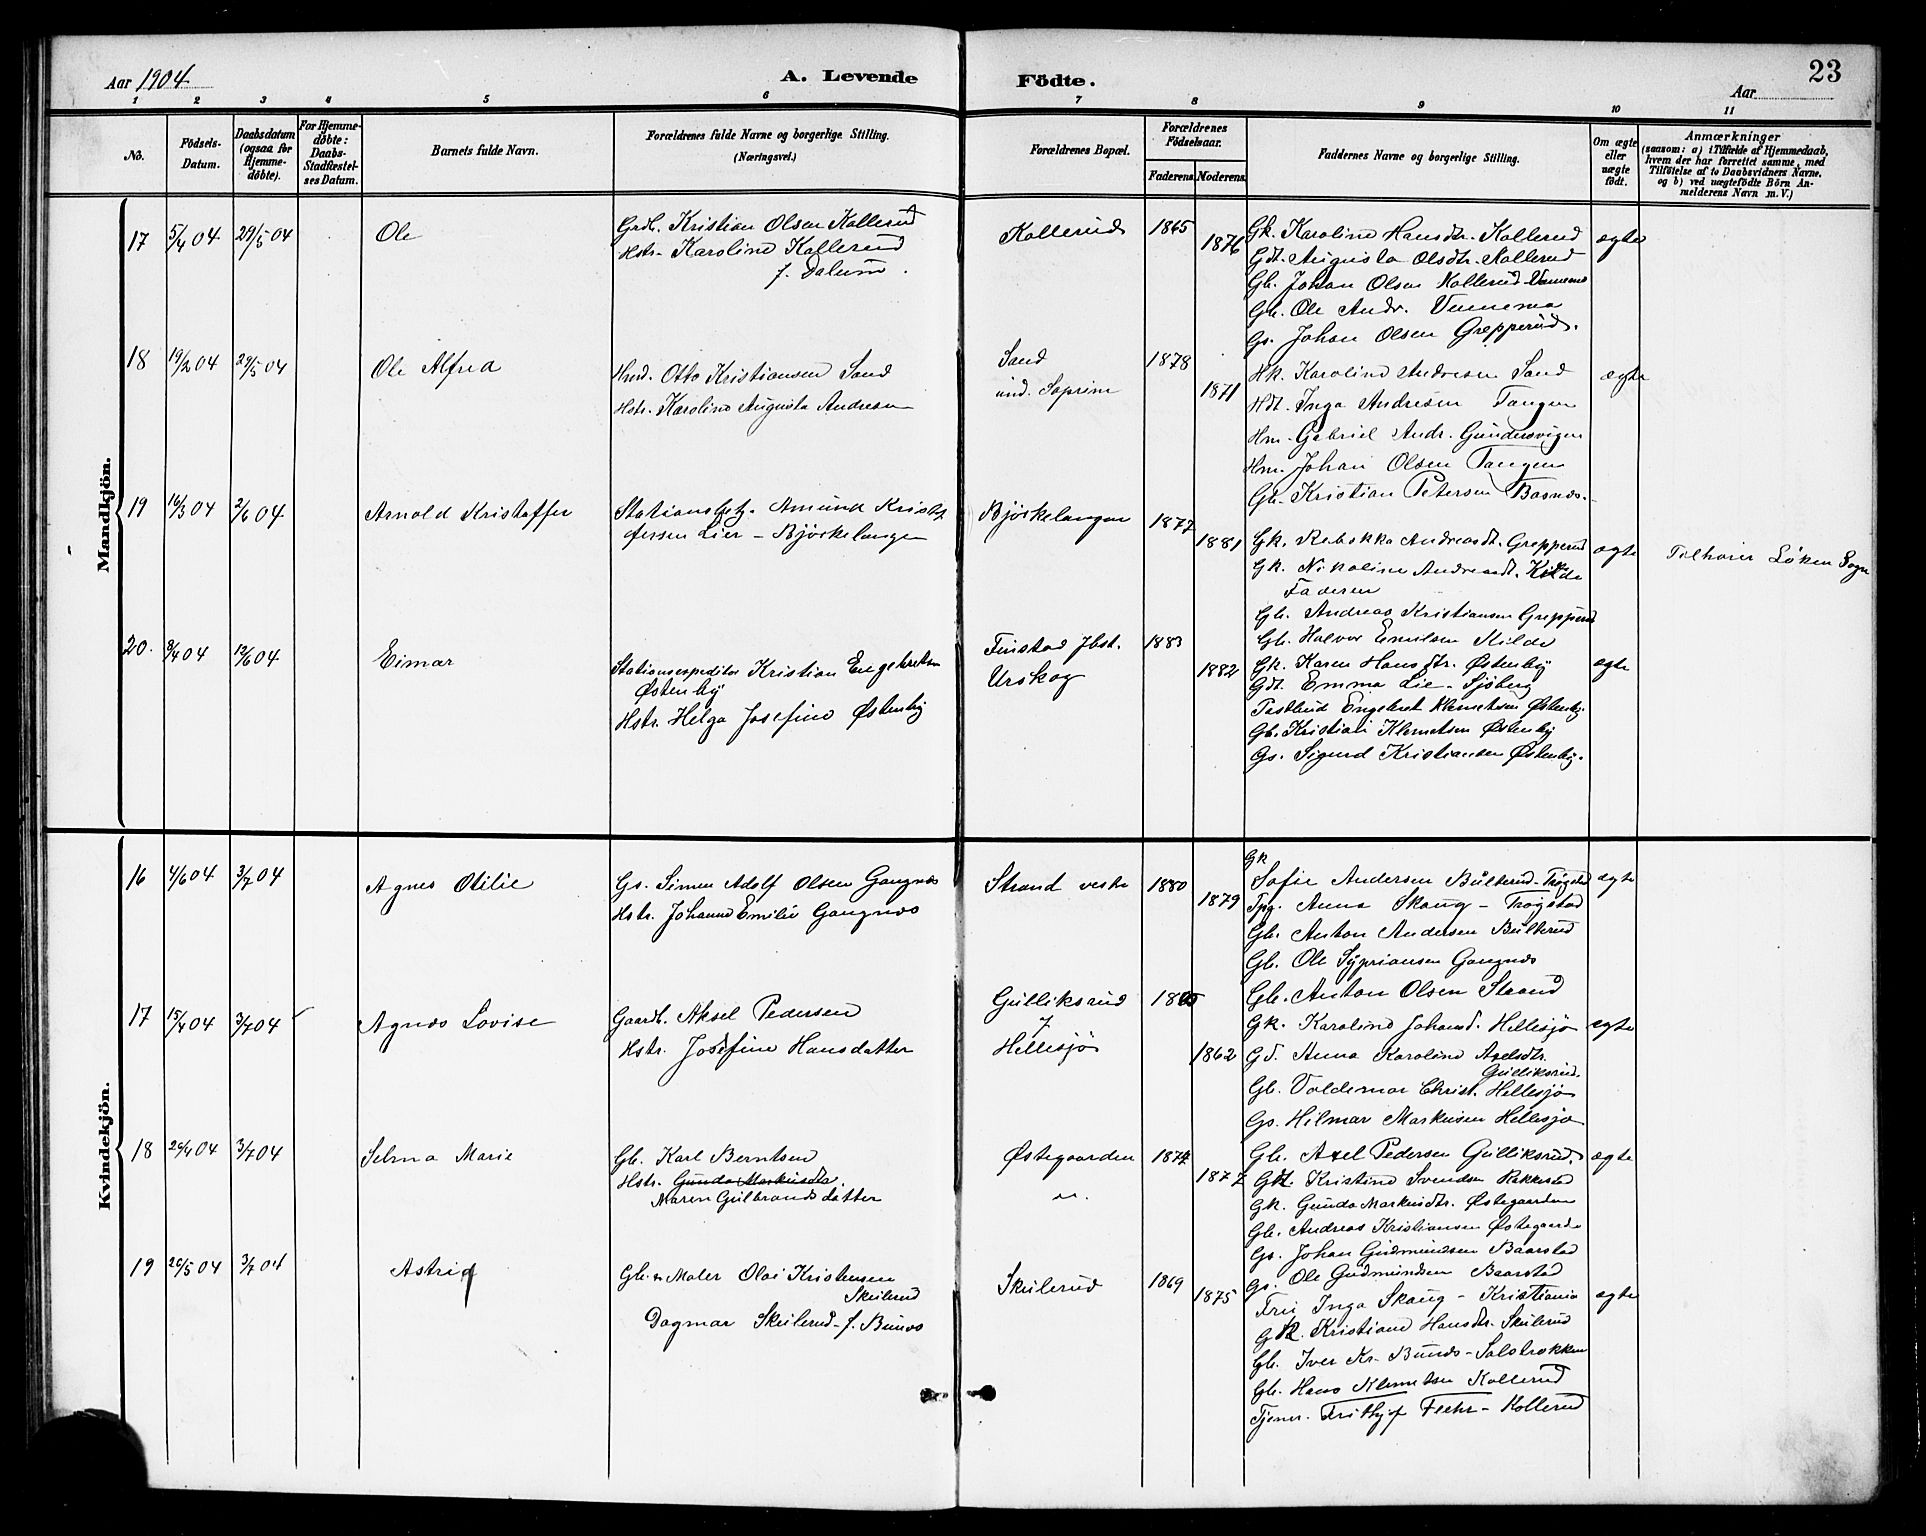 Aar 1904
A. Levende Födte.
23
Aar
1 2 3 4 5 6 7 8 9 10 11
No.
Födsels-
Datum.
Daabsdatum
(ogsaa for
Hjemme-
döbte).
For Hjemme-
döbte:
Daabs-
Stadfæstel-
ses Datum.
Barnets fulde Navn.
Forældrenes fulde Navne og borgerlige Stilling.
(Næringsvei.)
Forældrenes Bopæl.
Forældrenes
Födselsaar.
Faderens Moderens
Faddernes Navne og borgerlige Stilling.
Om ægte
eller
uægte
födt.
Anmærkninger
(saasom: a) i Tilfælde af Hjemmedaab,
hvem der har forrettet samme, med
Tilföielse af to Daabsvidners Navne,
og b) ved uægtefödte Börn An-
melderens Navn m. V.)
Mandkjön.
17 5/4 04 29/5 04 Ole
Grdb. Kristian Olsen Kollerud
Hstr. Karoline Kollerud
f. Dalum.
Kollerud 1865 1876
Gk. Karoline Hansdtr. Kollerud
Gdt. Augusta Olsdtr. Kollerud
Gb. Johan Olsen Kollerud
Gb. Ole Andr.
Gs. Johan Olsen Grepperud.
ægte
18 19/2 04 29/5 04 Ole Alfred
Hmd. Otto Kristiansen Sand
Hstr. Karoline Augusta Andresen
Sand
und. Soprim
1878 1871
Hk. Karoline Andresen Sand
Hdt. Inga Andresen Tangen
Hm. Gabriel Andr. Gundersvigen
Hm. Johan Olsen Tangen
Gb. Kristian Petersen Basnes.
ægte
19 16/3 04 2/6 04 Arnold Kristoffer
Stationsbetj. Amund Krist
fersen Lier - Bjørkelangen
Bjørkelangen 1877 1881
Gk. Rebekka Andreasdt. Grepperud
Gk. Nikoline Andreasdt. Kilde
Faderen
Gb. Andreas Kristiansen Grepperud
Gb. Halvor Emilsen Kilde
ægte
Tilhører Løken Sogn
20. 9/4 04 12/6 04 Eimar
Stationsexpeditør Kristian Engebretsen
Østenby
Hstr. Helga Josefine Østenby
Finstad Jbst.
Urskog
1883 1882
Gk. Karen Hansdtr. Østenby
Gdt. Emma Lie - Sjøberg
Postbud Engebret Klemetsen Østenby.
Gb. Kristian Klemetsen Østenby
Gs. Sigurd Kristiansen Østenby.
ægte
Kvindekjön.
16 4/6 04 3/7 04 Agnes Otilie
Gs. Simen Adolf Olsen Gangnæs
Hstr. Johanne Emilie Gangnæs
Strand vestre 1880 1879
Gk
Sofie Andersen Bulterud - Trøgstad
Tpg. Anna Skaug - Trøgstad
Gb. Anton Andersen Bulterud
Gb. Ole Sypriansen Gangnæs
Gb. Anton Olsen Strand
ægte
17 15/4 04 3/7 04 Agnes Lovise
Gaardb. Aksel Pedersen
Hstr. Josefine Hansdatter
Gulliksrud
f
Hellesjø
1862
Gk. Karoline Johansd. Hellesjø
Gd. Anna Karoline Axelsdtr.
Gulliksrud.
Gb. Valdemar Christ. Hellesjø
Gs. Hilmar Markusen Hellesjø
ægte
18 29/4 04 3/7 04 Selma Marie
Gb. Karl Berntsen
Hstr. Gunda Markusdtr.
Maren Gulbrandsdatter
Østegaarden
1874 1877
Gb. Axel Pedersen Gulliksrud.
Gdt. Kristine Svendsen Rakkestad
Gk. Gunda Markusdtr. Østegaarden
Gb. Andreas Kristiansen Østegaarden
Gs. Johan Gudmundsen Baarstad
ægte
19 20/5 04 3/7 04 Astrid
Gb. & Maler Olai Kristensen
Skulerud
Dagmar Skulerud - f. Bunæs
Skulerud 1869 1875
Gs. Ole Gudmundsen Baarstad
Fru Inga Skaug - Kristiania
Gk. Kristiane Hansdtr. Skulerud
Gb. Iver Kr. Bunæs - Salstrokken
Gb. Hans Klemetsen Kollerud
Tjener. Frithjof Flehr - Kollerud
ægte